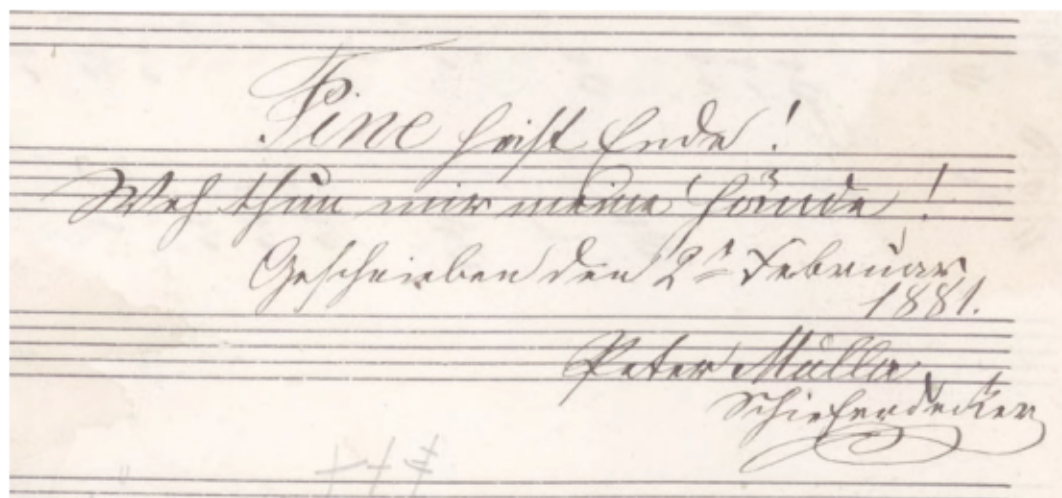 Fine heist Ende!
Weh thun mir meine Hände!
Geschrieben den 2ᵗ Februar
1881.
Peter Mülla
Schieferdecker